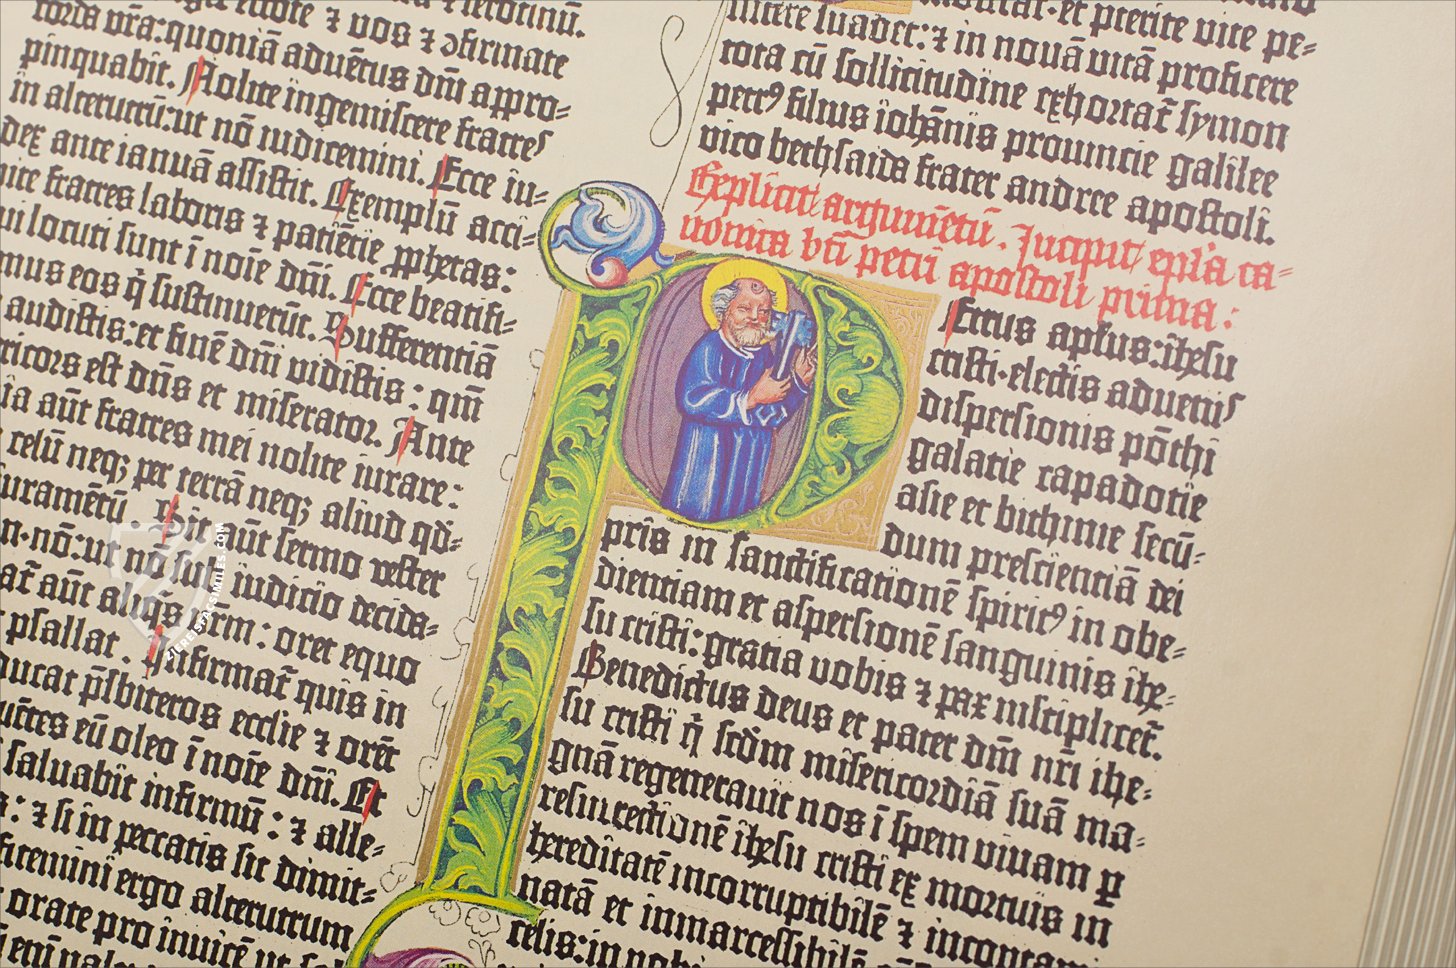 corda vr̄a:quoniā aduētus dm̄i appro-
pinquabit. Nolite ingemiscere fratres
in alterutrū:ut nō iudicemini. Ecce iu-
dex ante ianuā assistit. Exemplū acci-
pite fratres laboris ⁊ patiētie ꝓphetas:
qui locuti sunt ī noīe dn̄i. Ecce beatifi-
camus eos q̇ sustinuerūt. Sufferentiā
audistis:et finē dm̄i vidistis : qm̄
misericors est dn̄s et miserator. Ante
oīa aūt fratres mei nolite iurare:
celū neq; per terrā neq; aliud qd̄-
iuramētū. Sit aūt sermo vester
nō:ut nō sub iudicio decida-
aūt aliq̇s vr̄m: oret equo
psallat. Infirmat̄ quis in
ducat p̄sbiteros ecclie ⁊ orēt
eū oleo ī noīe dn̄i. Et
saluabit infirmū: ⁊ alle-
⁊ si in peccatis sit dimit-
ergo alterutrum
orate pro inuicē ut
suadet:⁊ in nouā vitā proficere
tota cū sollicitudine exhortat̄ symon
petr⁹ filius iohānis prouincie galilee
vico bethsaida frater andree apostoli.
Explicit argumētū. Incipit epl'a ca-
nonica bt̄i petri apostoli prima:
Petrus apl'us:ih̄esu
cristi·electis aduenis
dispersionis pōthi
galatie capadotie
asie et bithinie secū-
dum prescientiā dei
pr̄is in sanctificationē spirit⁹ in obe-
dientiam et aspersionē sanguinis ih̄e-
su cristi: gratia vobis ⁊ pax m̄ltiplicet̄.
Benedictus deus et pater dm̄i nr̄i ih̄e-
su cristi q̇ scd̄m misericordiā suā ma-
gnā regenerauit nos ī spem viuam ꝑ
resurrectionē ih̄esu cristi ex mortuis in
hereditatē incorruptibilē ⁊ incontami-
natā et inmarcessibilē
celis:in vobis